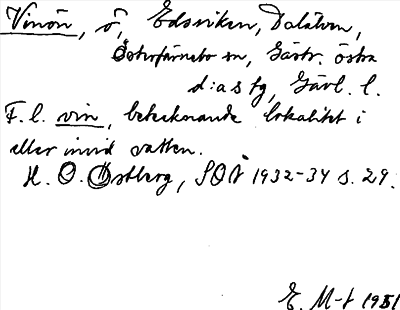 Vinön, ö, Edsviken, Dalälven,
Österfärnebo sn, Gästr. östra
d:as tg, Gävl. l.
F. l. vin, betecknande lokalitet i
eller invid vatten.
H. O. Östberg, SOÅ 1932-34 s. 29.
E. M-t 1951